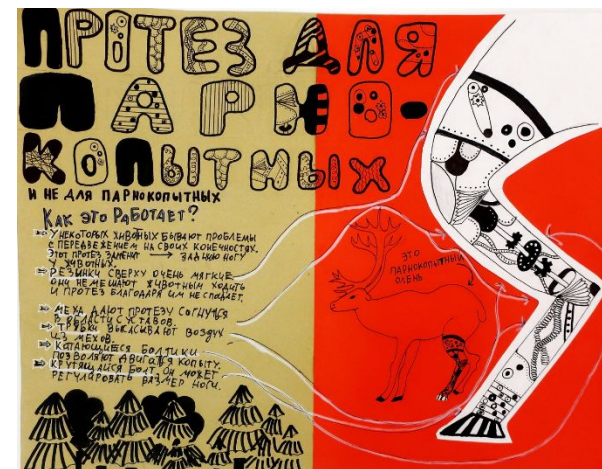 ПРОТЕЗ ДЛЯ
ПАРНО-
КОПЫТНЫХ
И НЕ ДЛЯ ПАРНОКОПЫТНЫХ
КАК ЭТО РАБОТАЕТ?
У НЕКОТОРЫХ ЖИВОТНЫХ БЫВАЮТ ПРОБЛЕМЫ
С ПЕРЕДВЕЖЕНИЕМ НА СВОИХ КОНЕЧНОСТЯХ.
ЭТОТ ПРОТЕЗ ЗАМЕНИТ → ЗАДНЮЮ НОГУ
У ЖИВОТНЫХ.
РЕЗИНКИ СВЕРХУ ОЧЕНЬ МЯГКИЕ
ОНИ НЕ МЕШАЮТ ЖИВОТНЫМ ХОДИТЬ
И ПРОТЕЗ БЛАГОДАРЯ ИМ НЕ СПАДАЕТ.
МЕХА ДАЮТ ПРОТЕЗУ СОГНУТСЯ
В ОБЛАСТИ СУСТАВОВ.
ТРУБКИ ВЫСАСЫВАЮТ ВОЗДУХ
ИЗ МЕХОВ.
КАТАЮЩИЕСЯ БОЛТИКИ
ПОЗВОЛЯЮТ ДВИГАТЬСЯ КОПЫТУ.
КРУТЯЩИЙСЯ БОЛТ. ОН МОЖЕТ
РЕГУЛИРОВАТЬ РАЗМЕР НОГИ.
ЭТО
ПАРНОКОПЫТНЫЙ
ОЛЕНЬ